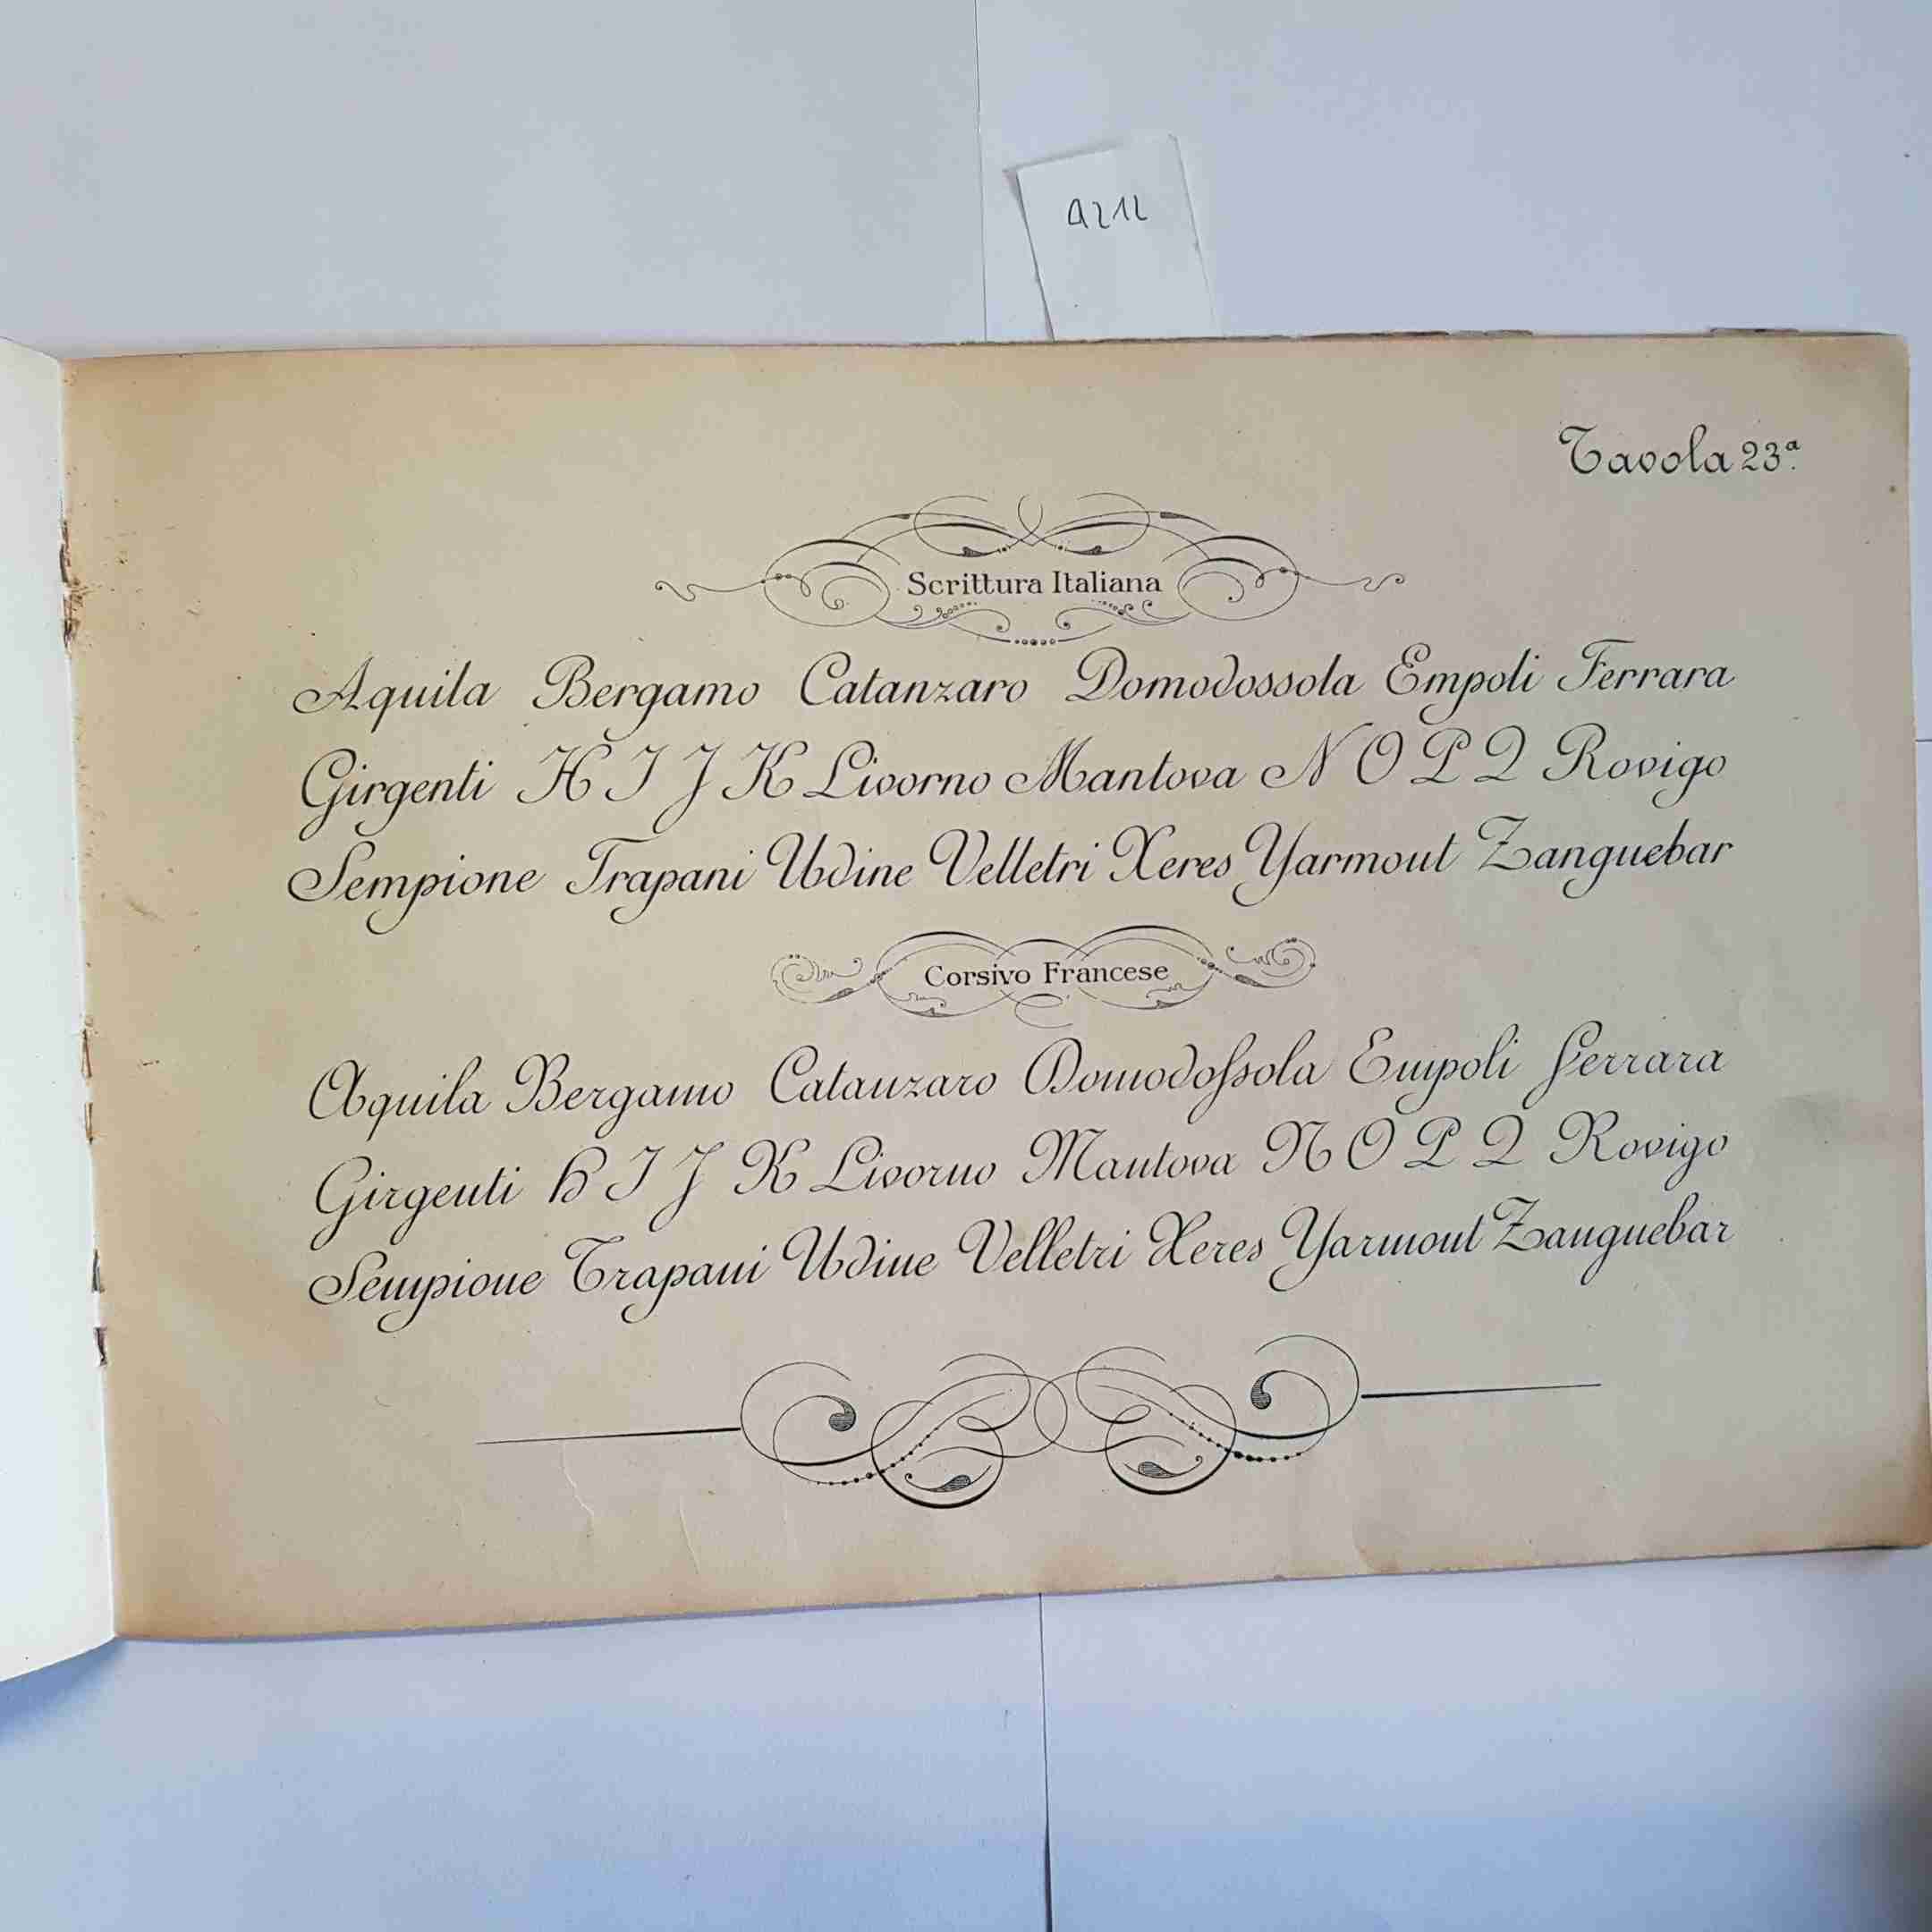 9212
Tavola 23ª
Scrittura Italiana
Aquila Bergamo Catanzaro Domodossola Empoli Ferrara
Girgenti H I J K Livorno Mantova N O P Q Rovigo
Sempione Trapani Udine Velletri Xeres Yarmout Zanguebar
Corsivo Francese
Aquila Bergamo Catanzaro Domodoſsola Empoli Ferrara
Girgenti H I J K Livorno Mantova N O P Q Rovigo
Sempione Trapani Udine Velletri Xeres Yarmout Zanguebar